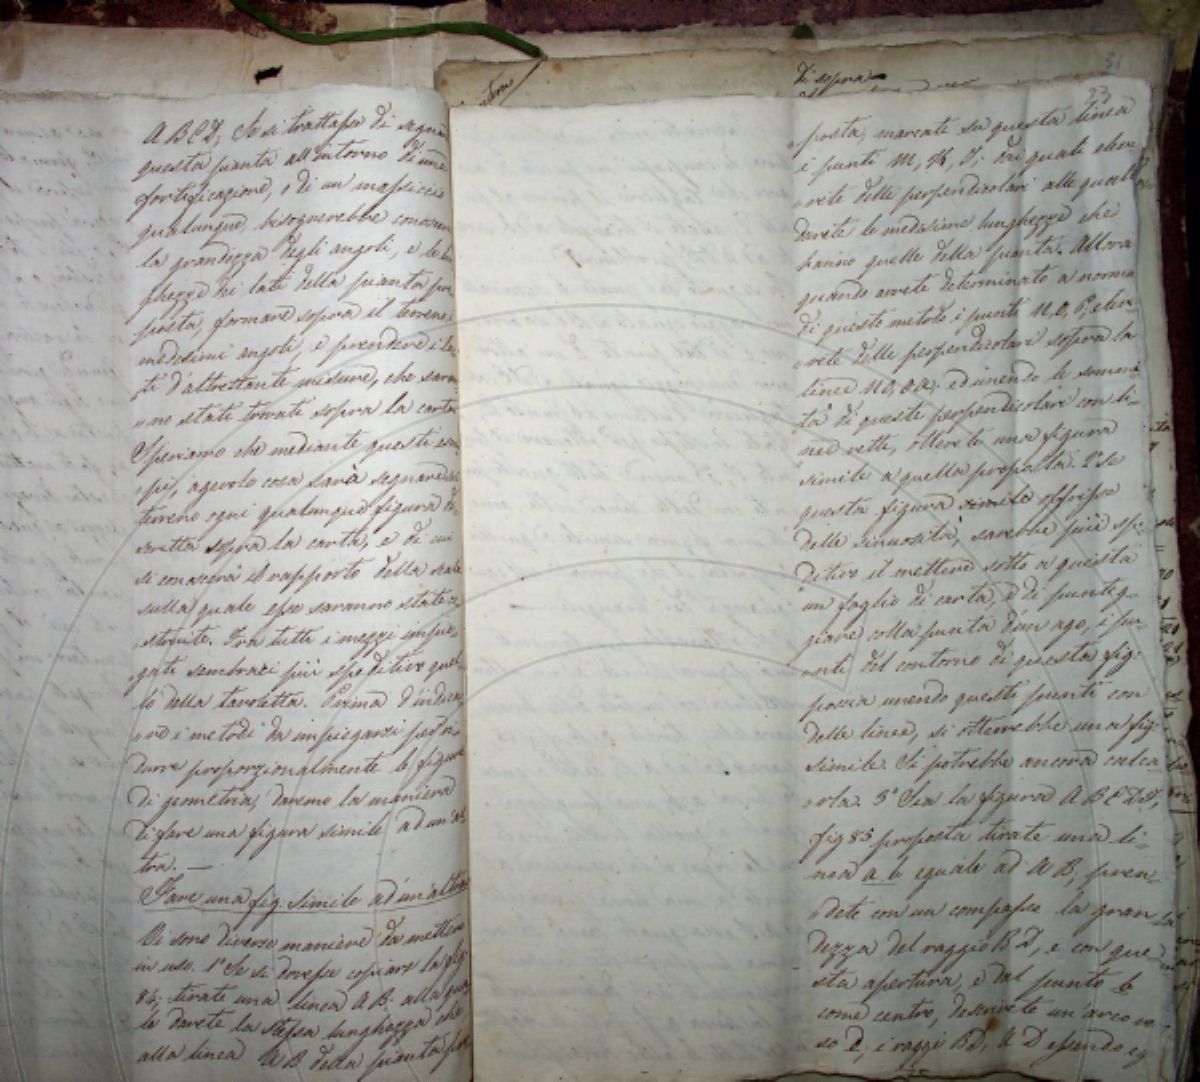 ABCD, Se si trattasse di segna
questa pianta all'intorno di una
fortificazione, o di un massiccio
qualunque, bisognerebbe conoscere
la grandezza degli angoli, e le lun
ghezze dei lati della pianta pro
posta, formare sopra il terreno i
medesimi angoli, e prendere i la
ti d'altrettante misure, che saran
no stati trovate sopra la carta.
Speriamo che mediante questi esem
pi, agevole cosa sarà segnare sul
terreno ogni qualunque figura de
scritta sopra la carta, e di cui
si conoscerà il rapporto della scala
sulla quale esse saranno state co
struite. Fra tutti i mezzi impie
gati sembraci più speditivo quel
lo della tavoletta. Prima d'indica
re i metodi da impiegarsi per ri
durre proporzionalmente le figure
di geometria, daremo la maniera
di fare una figura simile ad un'al
tra. —
Fare una fig. simile ad un'altra
Vi sono diverse maniere da mettere
in uso. 1° Se si dovesse copiare la fig
84; tirate una linea AB. alla qua
le darete la stessa lunghezza che
alla linea AB della pianta pro
Di sopra
31
23
posta, marcate su questa linea
i punti M, K, I; dai quali eleve
rete delle perpendicolari alle quali
darete le medesime lunghezze che
hanno quelle della pianta. Allora
quando avrete determinato a norma
di questo metodo i punti N, O, P, eleve
rete delle perpendicolari sopra la
linee NO, OP. ed unendo le sommi
tà di queste perpendicolari con li-
nee rette, otterrete una figura
simile a quella proposta. 2° Se
questa figura simile offrisse
delle sinuosità, sarebbe più spe
ditivo il mettere sotto a questa
un foglio di carta, e di punteg-
giare colla punta d'un ago, i pu
nti del contorno di questa fig.
poscia unendo questi punti con
delle linee, si otterrebbe una fig
simile. Si potrebbe ancora calca
rla. 3° Sia la figura ABCDE,
fig 85 proposta tirate una li-
nea a b eguale ad AB, pren-
dete con un compasso la gran
dezza del raggio BD, e con que
sta apertura, e dal punto b
come centro, descrivete un'arco ve
so D; i raggi BD, AD essendo eg